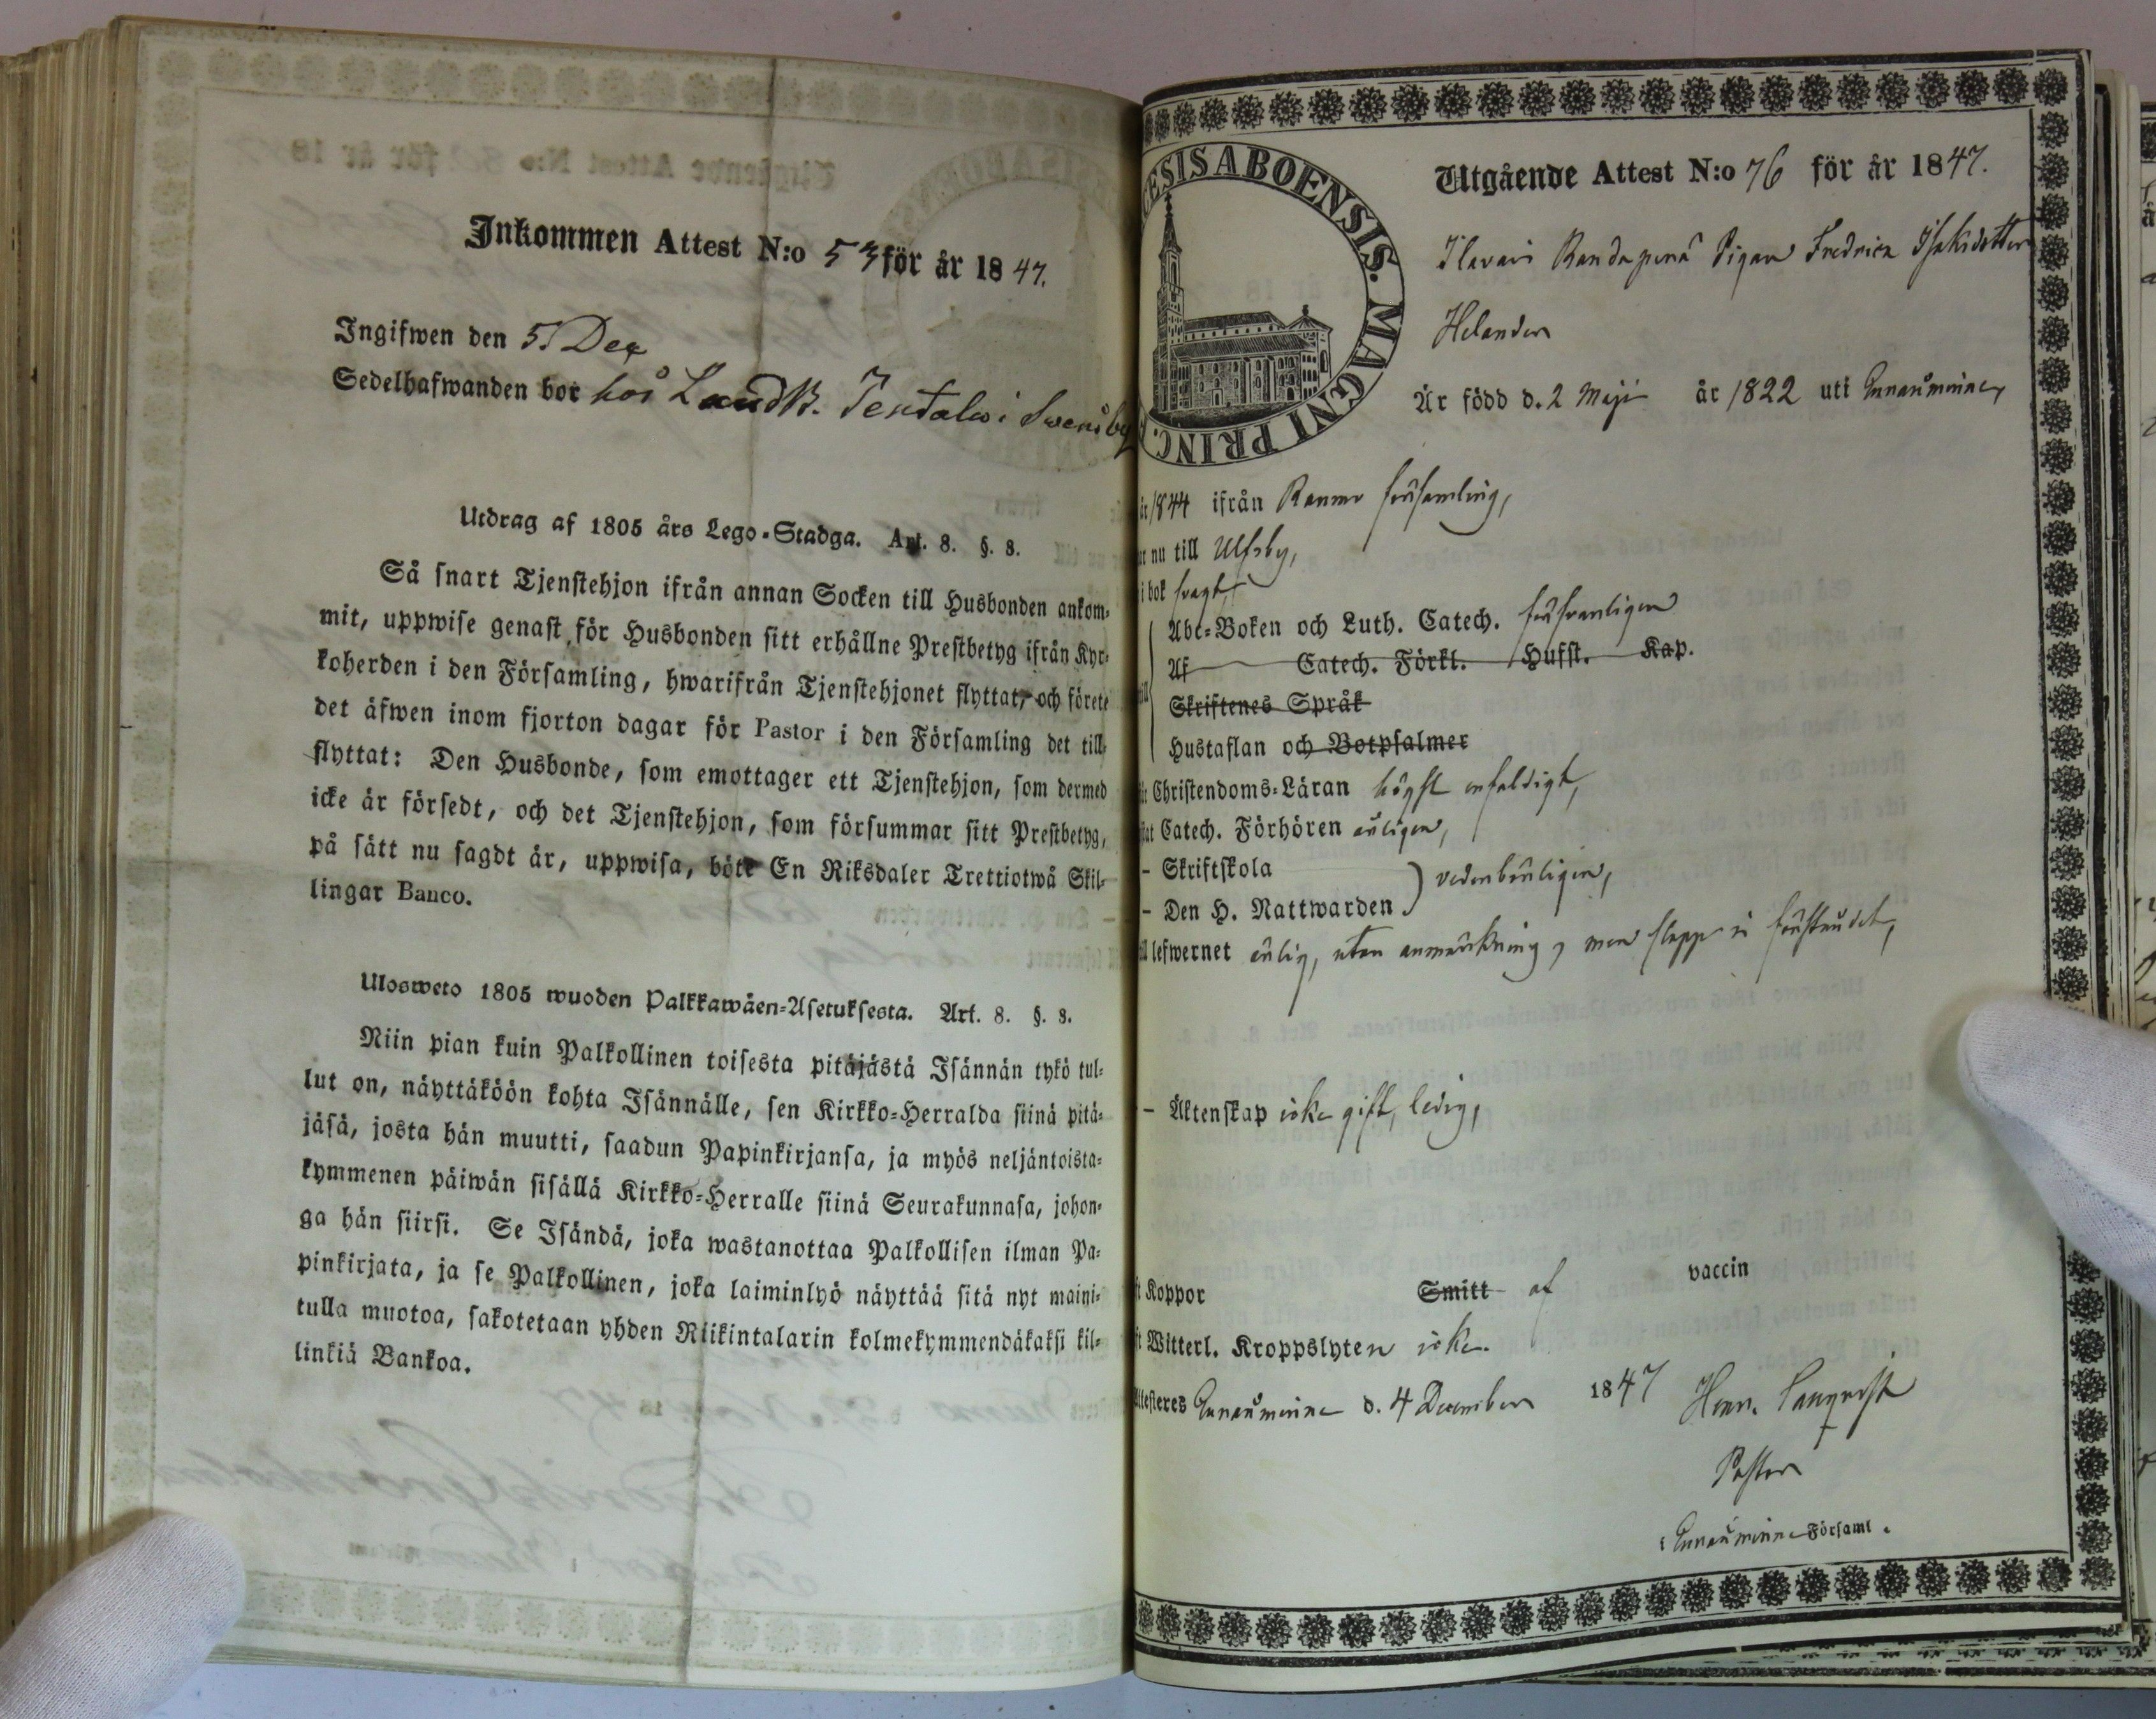 Inkommen Attest N:o 53 för år 1847.
Ingifwen den 5 Dec
Sedelhafwanden bor hos Landtb. i Swensby
Utdrag af 1805 års Lego-Stadga. Art. 8. §. 8.
Så snart Tjenstehjon ifrån annan Socken till Husbonden ankom-
mit, uppwise genast för Husbonden sitt erhållne Prestbetyg ifrån Kyr-
koherden i den Församling, hwarifrån Tjenstehjonet flyttat, och förete
det äfwen inom fjorton dagar för Pastor i den Församling det till-
flyttat: Den Husbonde, som emottager ett Tjenstehjon, som dermed
icke är försedt, och det Tjenstehjon, som försummar sitt Prestbetyg,
på sätt nu sagdt är, uppwisa, böte En Riksdaler Trettiotwå Skil-
lingar Banco.
Ulosweto 1805 wuoden Palkkawäen-Asetuksesta. Art. 8. §. 8.
Niin pian kuin Palkollinen toisesta pitäjästä Isännän tykö tul-
lut on, näyttäköön kohta Isännälle, sen Kirkko-Herralda siinä pitä-
jäsä, josta hän muutti, saadun Papinkirjansa, ja myös neljäntoista-
kymmenen päiwän sisällä Kirkko-Herralle siinä Seurakunnasa, johon-
ga hän siirsi. Se Isändä, joka wastanottaa Palkollisen ilman Pa-
pinkirjata, ja se Palkollinen, joka laiminlyö näyttää sitä nyt maini-
tulla muotoa, sakotetaan yhden Riikintalarin kolmekymmendäkaksi kil-
linkiä Bankoa.
ESIS ABOENSIS. MAGNI PRINC.
Utgående Attest N:o 76 för år 1847.
Pigan Fredrica Isaksdotter
Helander
Är född d. 2 Maji år 1822 uti Eurauminne,
år 1844 ifrån Raumo församling,
nu till Ulfsby,
i bok svagt,
Abc-Boken och Luth. Catech. försvarligen
Af Catech. Förkl. Hufst. Kap.
Skriftenes Språk
Hustaflan och Botpsalmer
Christendoms-Läran högst enfaldigt,
Catech. Förhören årligen,
- Skriftskola
- Den H. Nattwarden ) vederbörligen,
lefwernet ärlig, utan anmärkning, men slapp i förståndet,
- Äktenskap icke gift, ledig,
Koppor Smitt af vaccin
Witterl. Kroppslyten icke.
Attesteres Eurauminne d. 4 December 1847 Henr.
Pastor
i Eurauminne Församl.